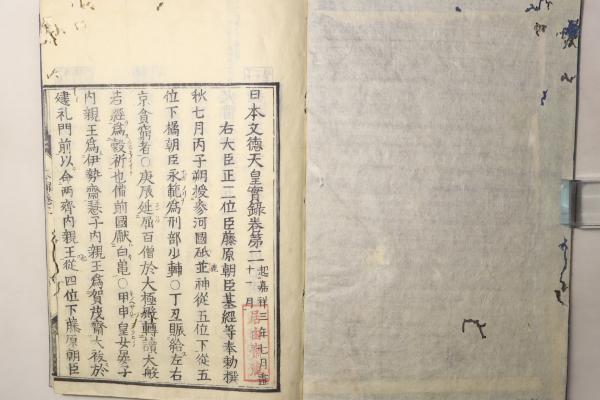 日本文德天皇實録卷第二 起嘉祥三年七月盡十一月
右大臣正二位臣藤原朝臣基經等奉勅撰
秋七月丙子朔授參河國砥並神從五位下從五
位下橘朝臣永範爲刑部少輔○丁丑賑給左右
京貧窮者○庚辰延屈百僧於大極殿轉讀大般
若經爲穀祈也備前國獻白亀○甲申皇女晏子
内親王爲伊勢齋慧子内親王爲賀茂齋大祓於
建礼門前以命兩齊内親王從四位下藤原朝臣